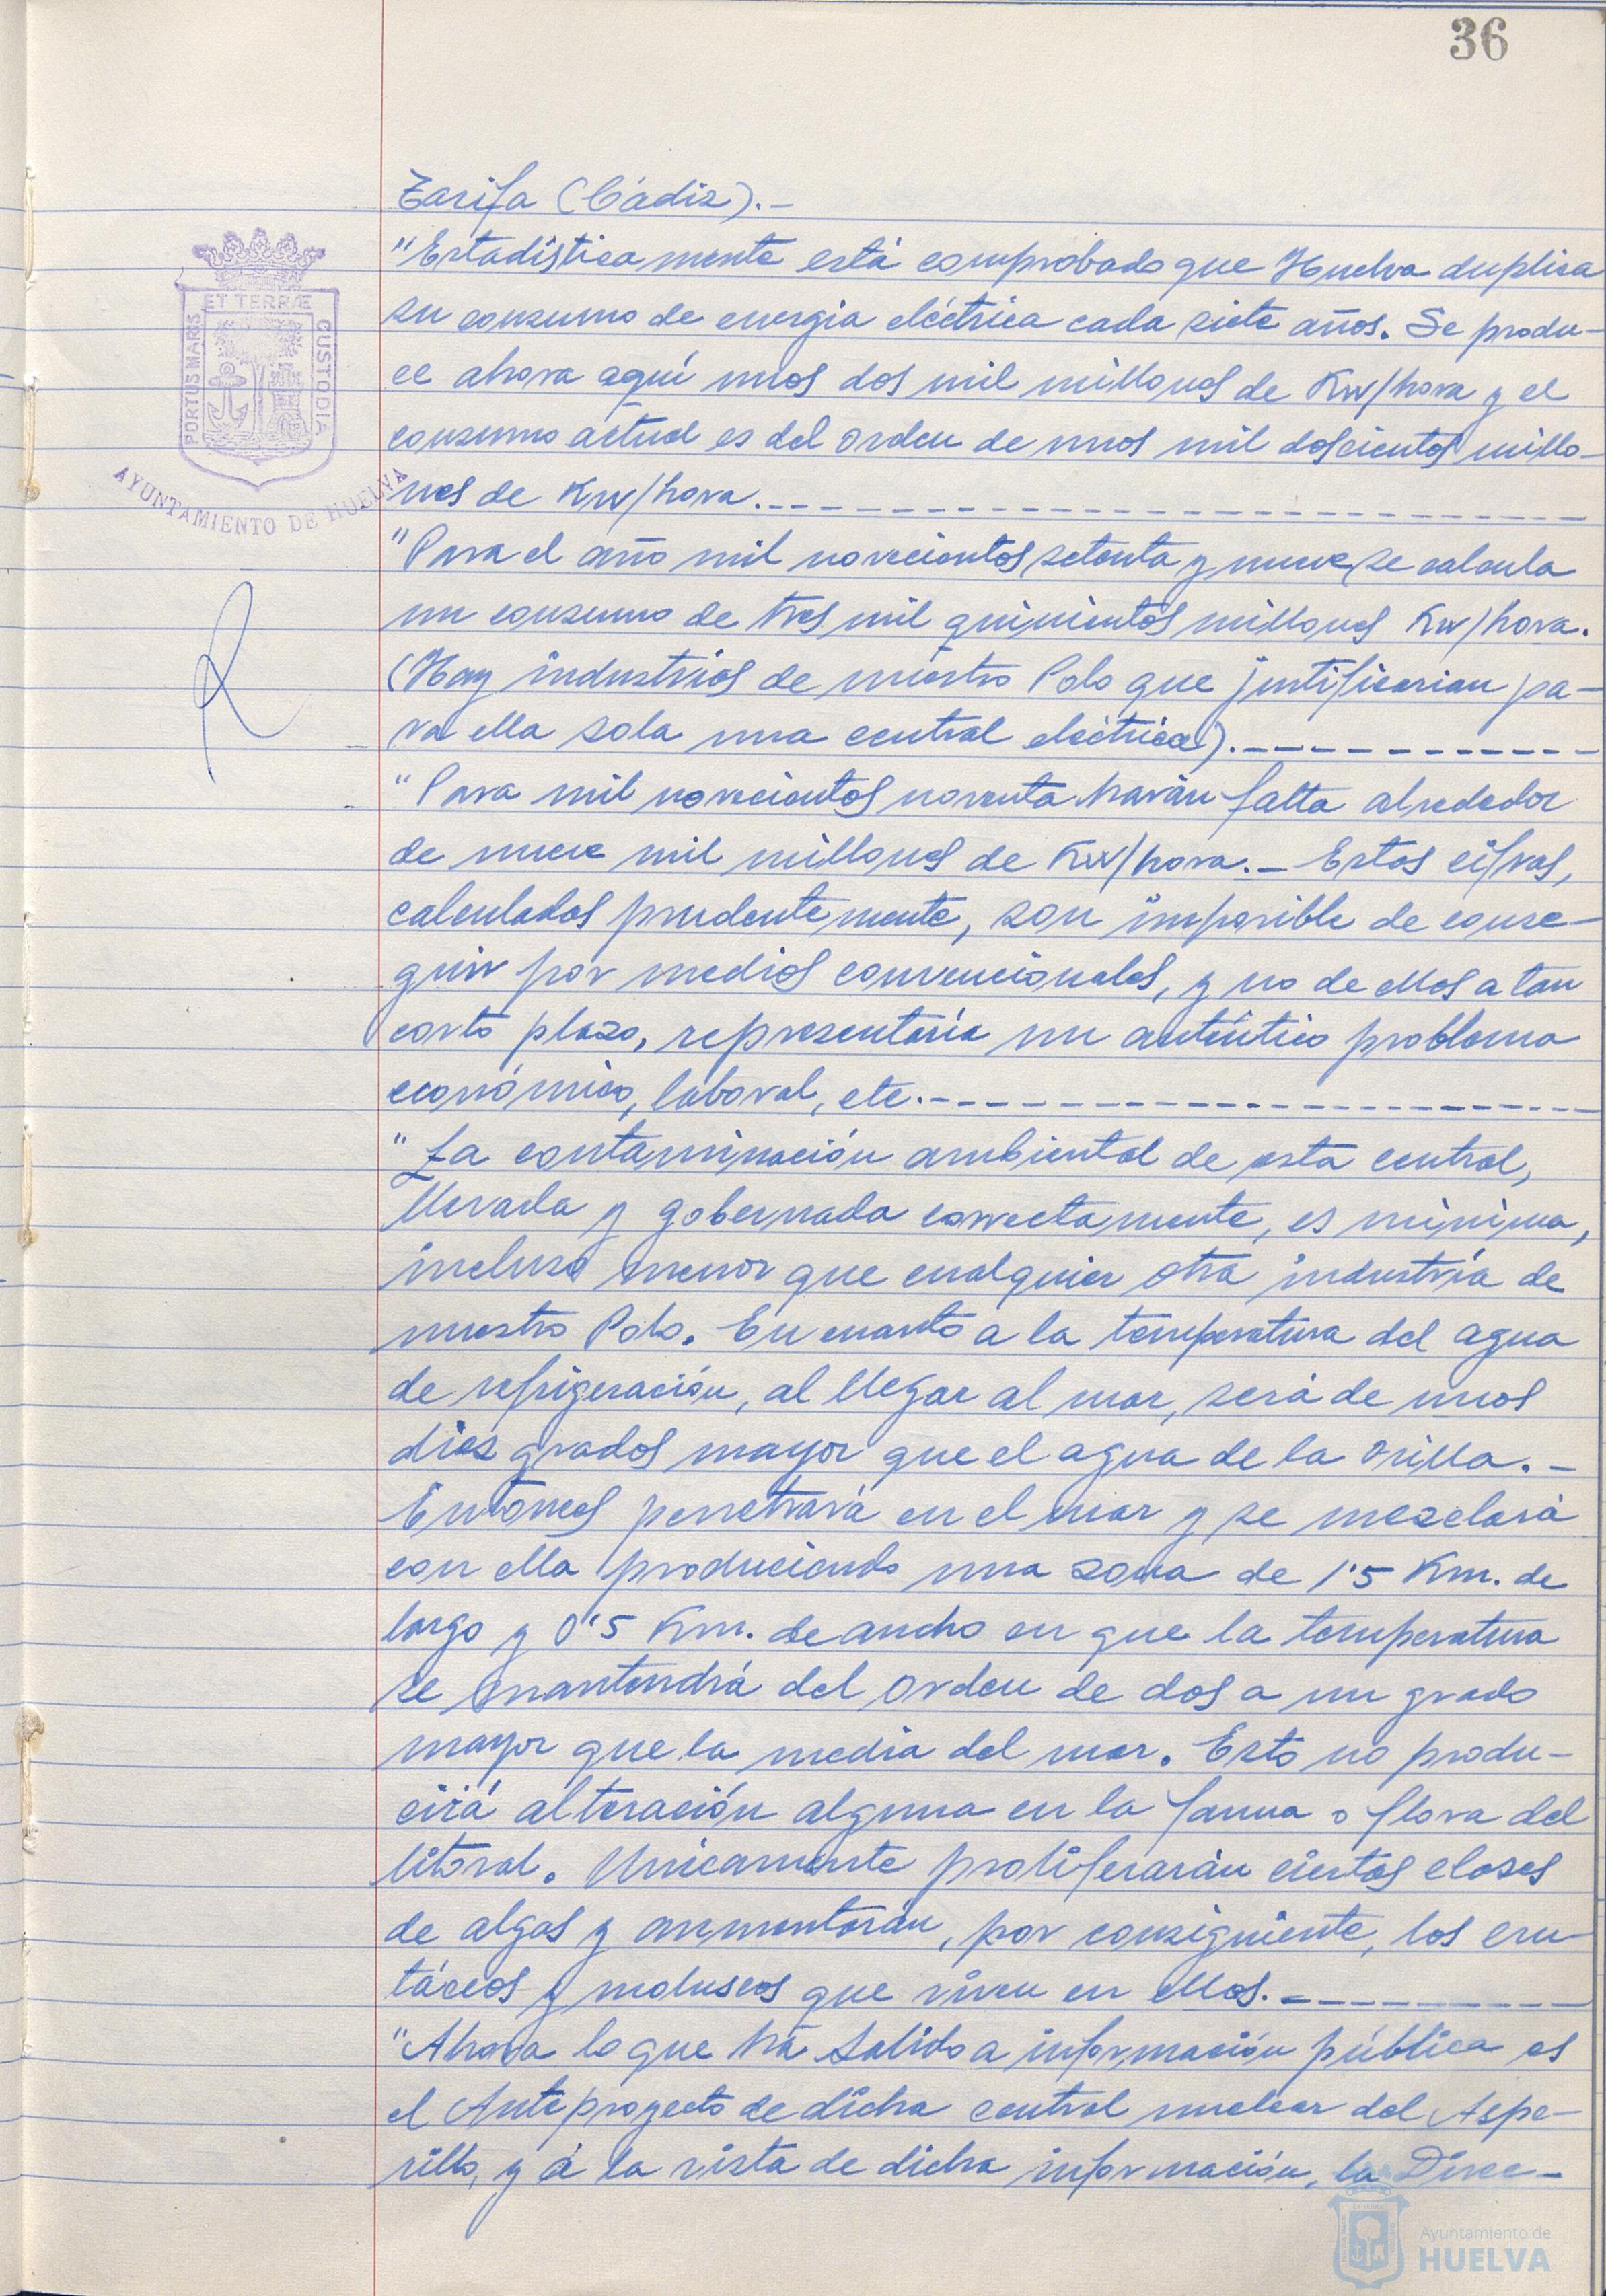 36
Tarifa (Cádiz).-
"Estadísticamente está comprobado que Huelva duplica
su consumo de energia eléctrica cada siete años. Se produ-
ce ahora aquí unos dos mil millones de Kw/hora y el
consumo actual es del orden de unos mil doscientos millo-
nes de Kw/hora.
"Para el año mil novecientos setenta y nueve se calcula
un consumo de tres mil quinientos millones Kw/hora.
(Hay industrias de nuestro Polo que justificarian pa-
ra ella sola una central eléctrica).
"Para mil novecientos noventa harán falta alrededor
de nueve mil millones de Kw/hora.- Estas cifras,
calculadas prudentemente, son imposible de conse-
guir por medios convencionales, y no de ellos a tan
corto plazo, representaría un auténtico problema
económico, laboral, etc.
"La contaminación ambiental de esta central,
llevada y gobernada correctamente, es mínima,
incluso menor que cualquier otra industria de
nuestro Polo. En cuanto a la temperatura del agua
de refrigeración, al llegar al mar, será de unos
diez grados mayor que el agua de la orilla.-
Entonces penetrará en el mar y se mezclará
con ella produciendo una zona de 1'5 Km. de
largo y 0'5 Km. de ancho en que la temperatura
se mantendrá del orden de dos a un grado
mayor que la media del mar. Esto no produ-
cirá alteración alguna en la fauna o flora del
litoral. Unicamente proliferarán ciertas clases
de algas y aumentarán, por consiguiente, los crus-
táceos y moluscos que viven en ellas.
"Ahora lo que ha salido a información pública es
el Anteproyecto de dicha central nuclear del Aspe-
rillo, y a la vista de dicha información, la Direc-
ET TERRÆ
PORTUS MARIS
CUSTODIA
AYUNTAMIENTO DE HUELVA
Ayuntamiento de
HUELVA